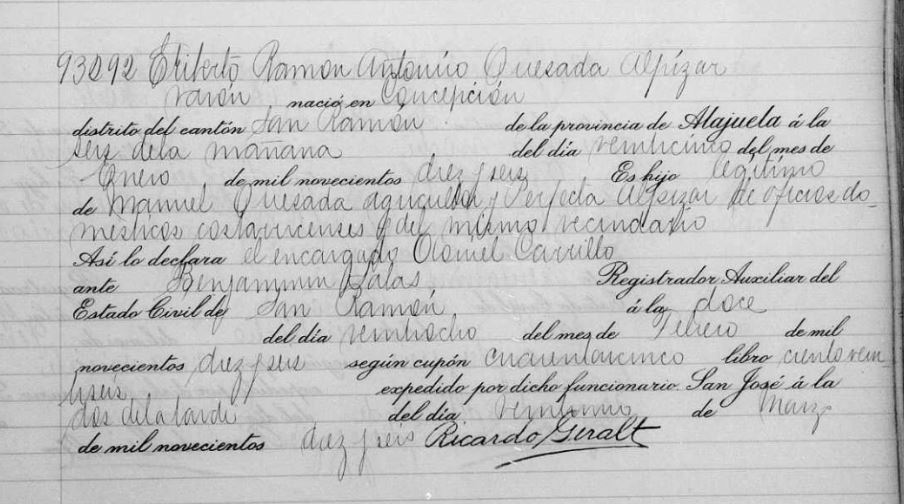 93292 Eliberto Ramon Antonino Quesada Alpízar
varón nació en Concepción
distrito del cantón San Ramón de la provincia de Alajuela á la
seis dela mañana del día veinticinco del mes de
Enero de mil novecientos diez y seis Es hijo legítimo
de Manuel Quesada agricultor y Perfecta Alpizar de oficios do-
mésticos costarricenses y del mismo vecindario
Así lo declara el encargado Otoniel Carrillo
ante Benjammin Salas Registrador Auxiliar del
Estado Civil de San Ramón á la doce
del día veintiocho del mes de Febrero de mil
novecientos diez y seis según cupón cuarentaicinco libro ciento vein
tiseis expedido por dicho funcionario. San José á la
dos de la tarde del día de Marzo
de mil novecientos diez y seis Ricardo Geralt